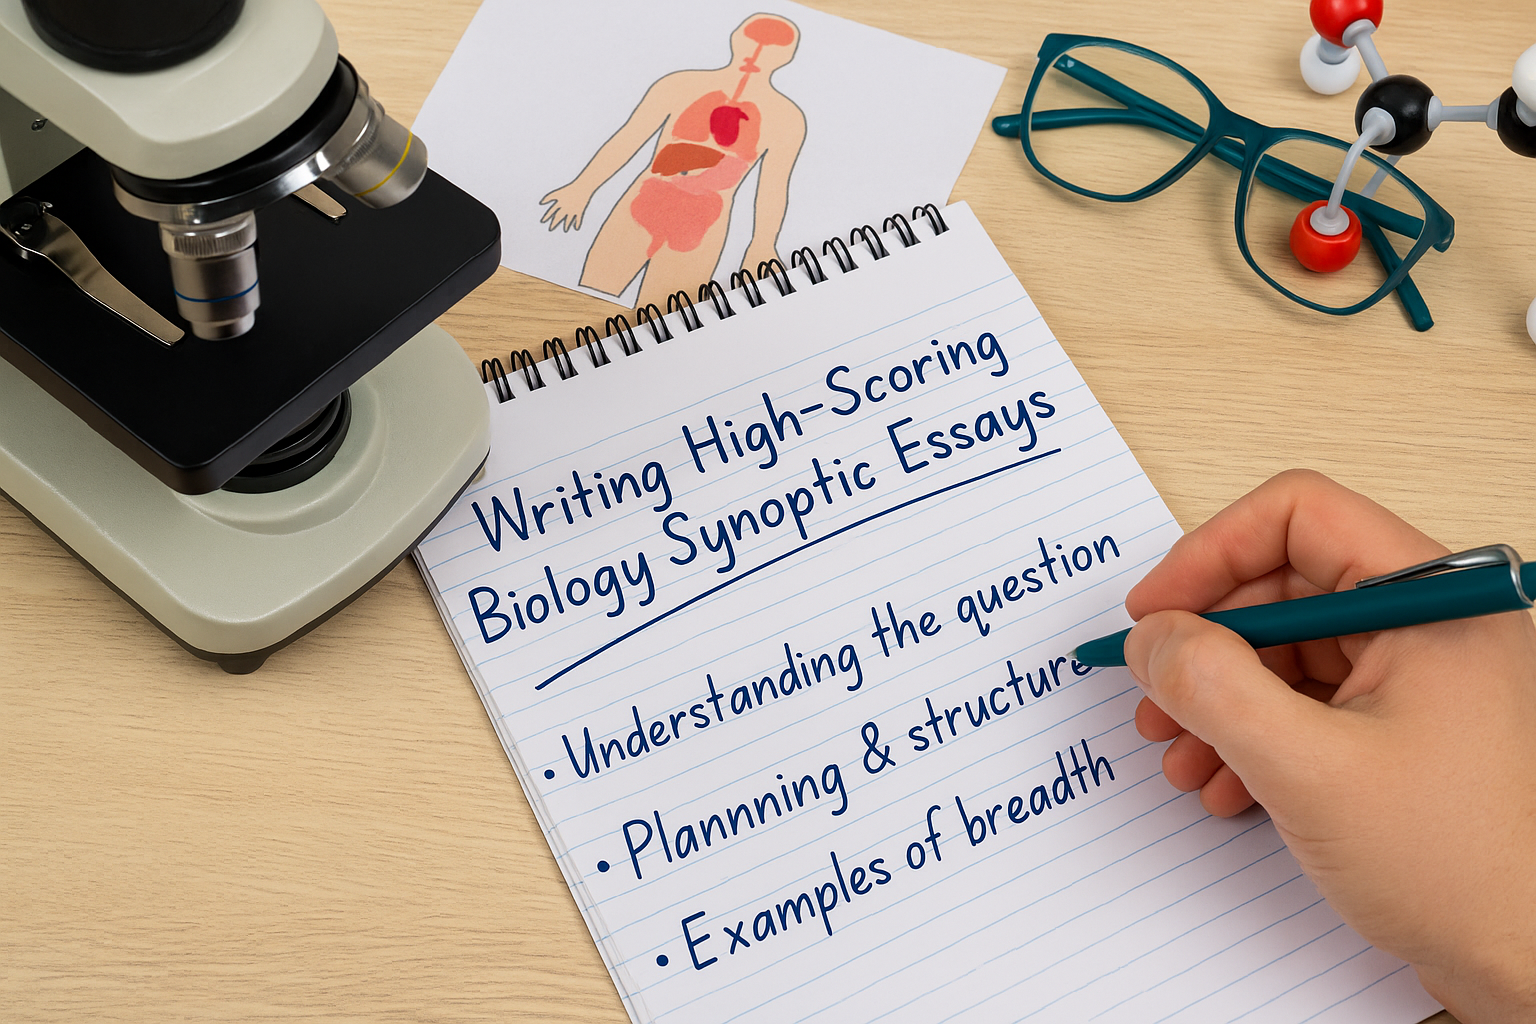 Writing High-Scoring
Biology Synoptic Essays
• Understanding the question
• Plannning & structure
• Examples of breadth